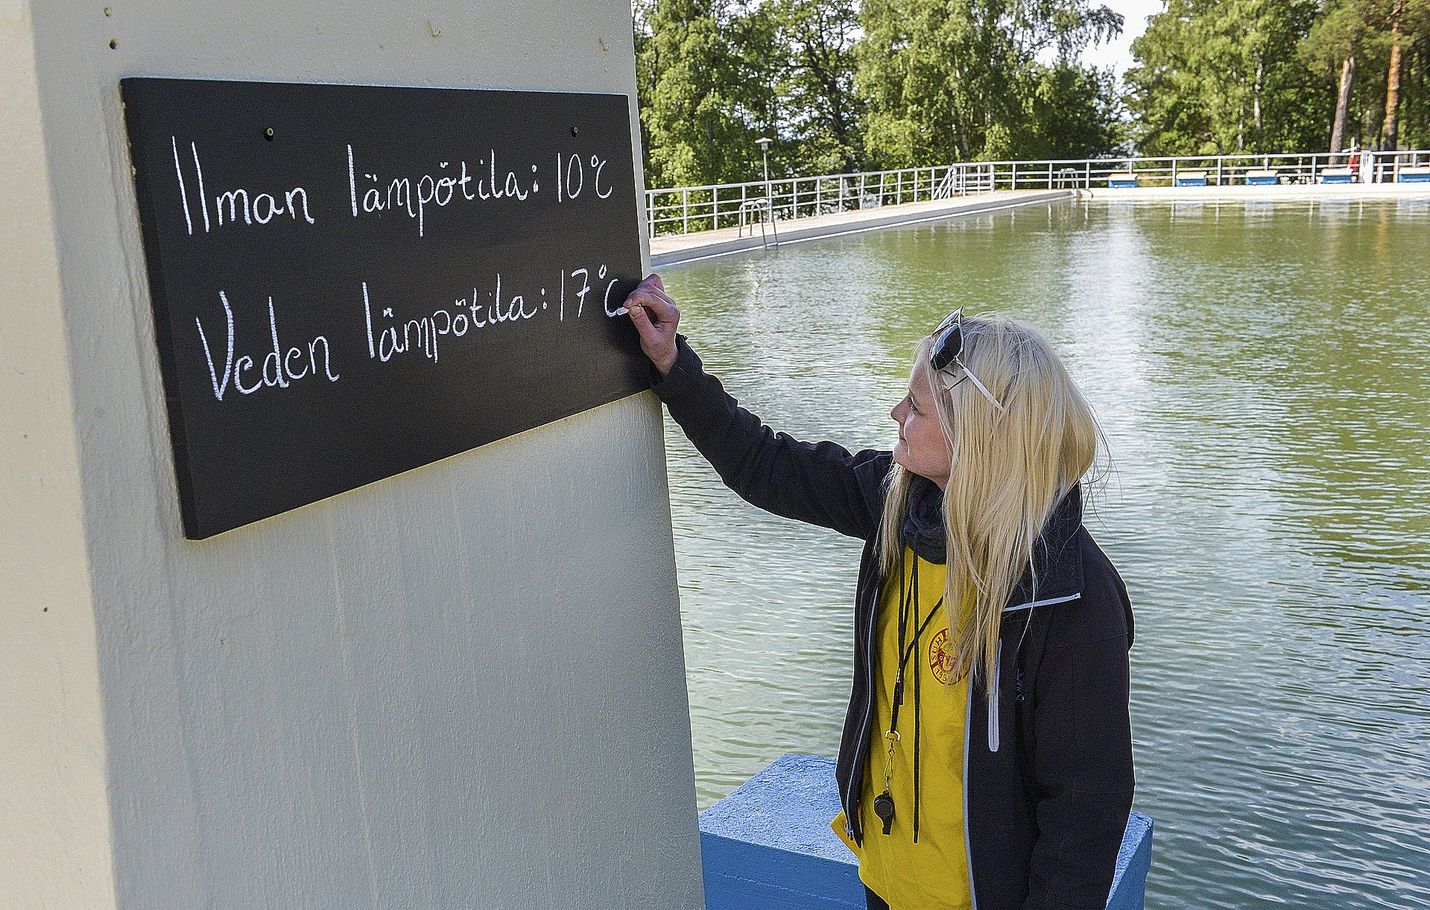 Ilman lämpötila: 10°C
Veden lämpötila: 17°C